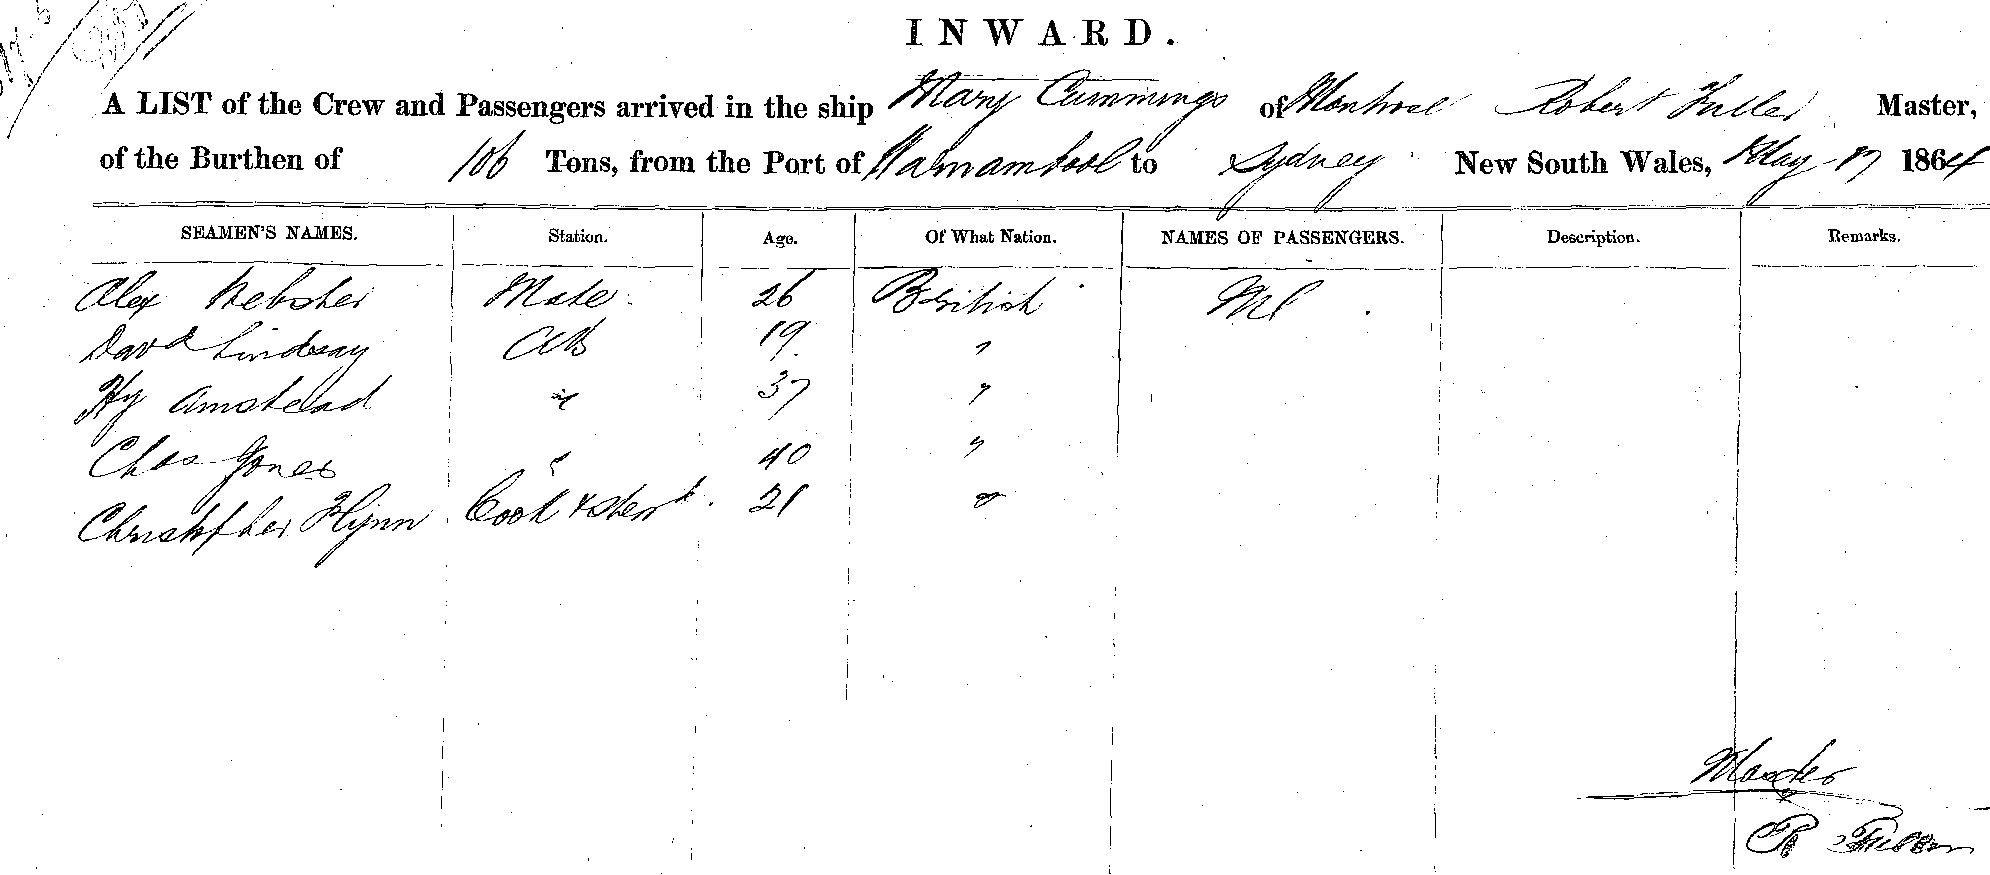 INWARD.
A LIST of the Crew and Passengers arrived in the ship Mary Cummings of Montrose Robert Fuller Master,
of the Burthen of 106 Tons, from the Port of Warnambool to Sydney New South Wales, May 17 1864
SEAMEN'S NAMES. Station. Age. Of What Nation. NAMES OF PASSENGERS. Description. Remarks.
Alex Webster Mate 26 British
Davd Lindsay AB 19 "
Hy Amstead " 37 "
Chas Jones " 40 "
Christopher Flynn Cook & Stewd 21 "
Master
R Fuller